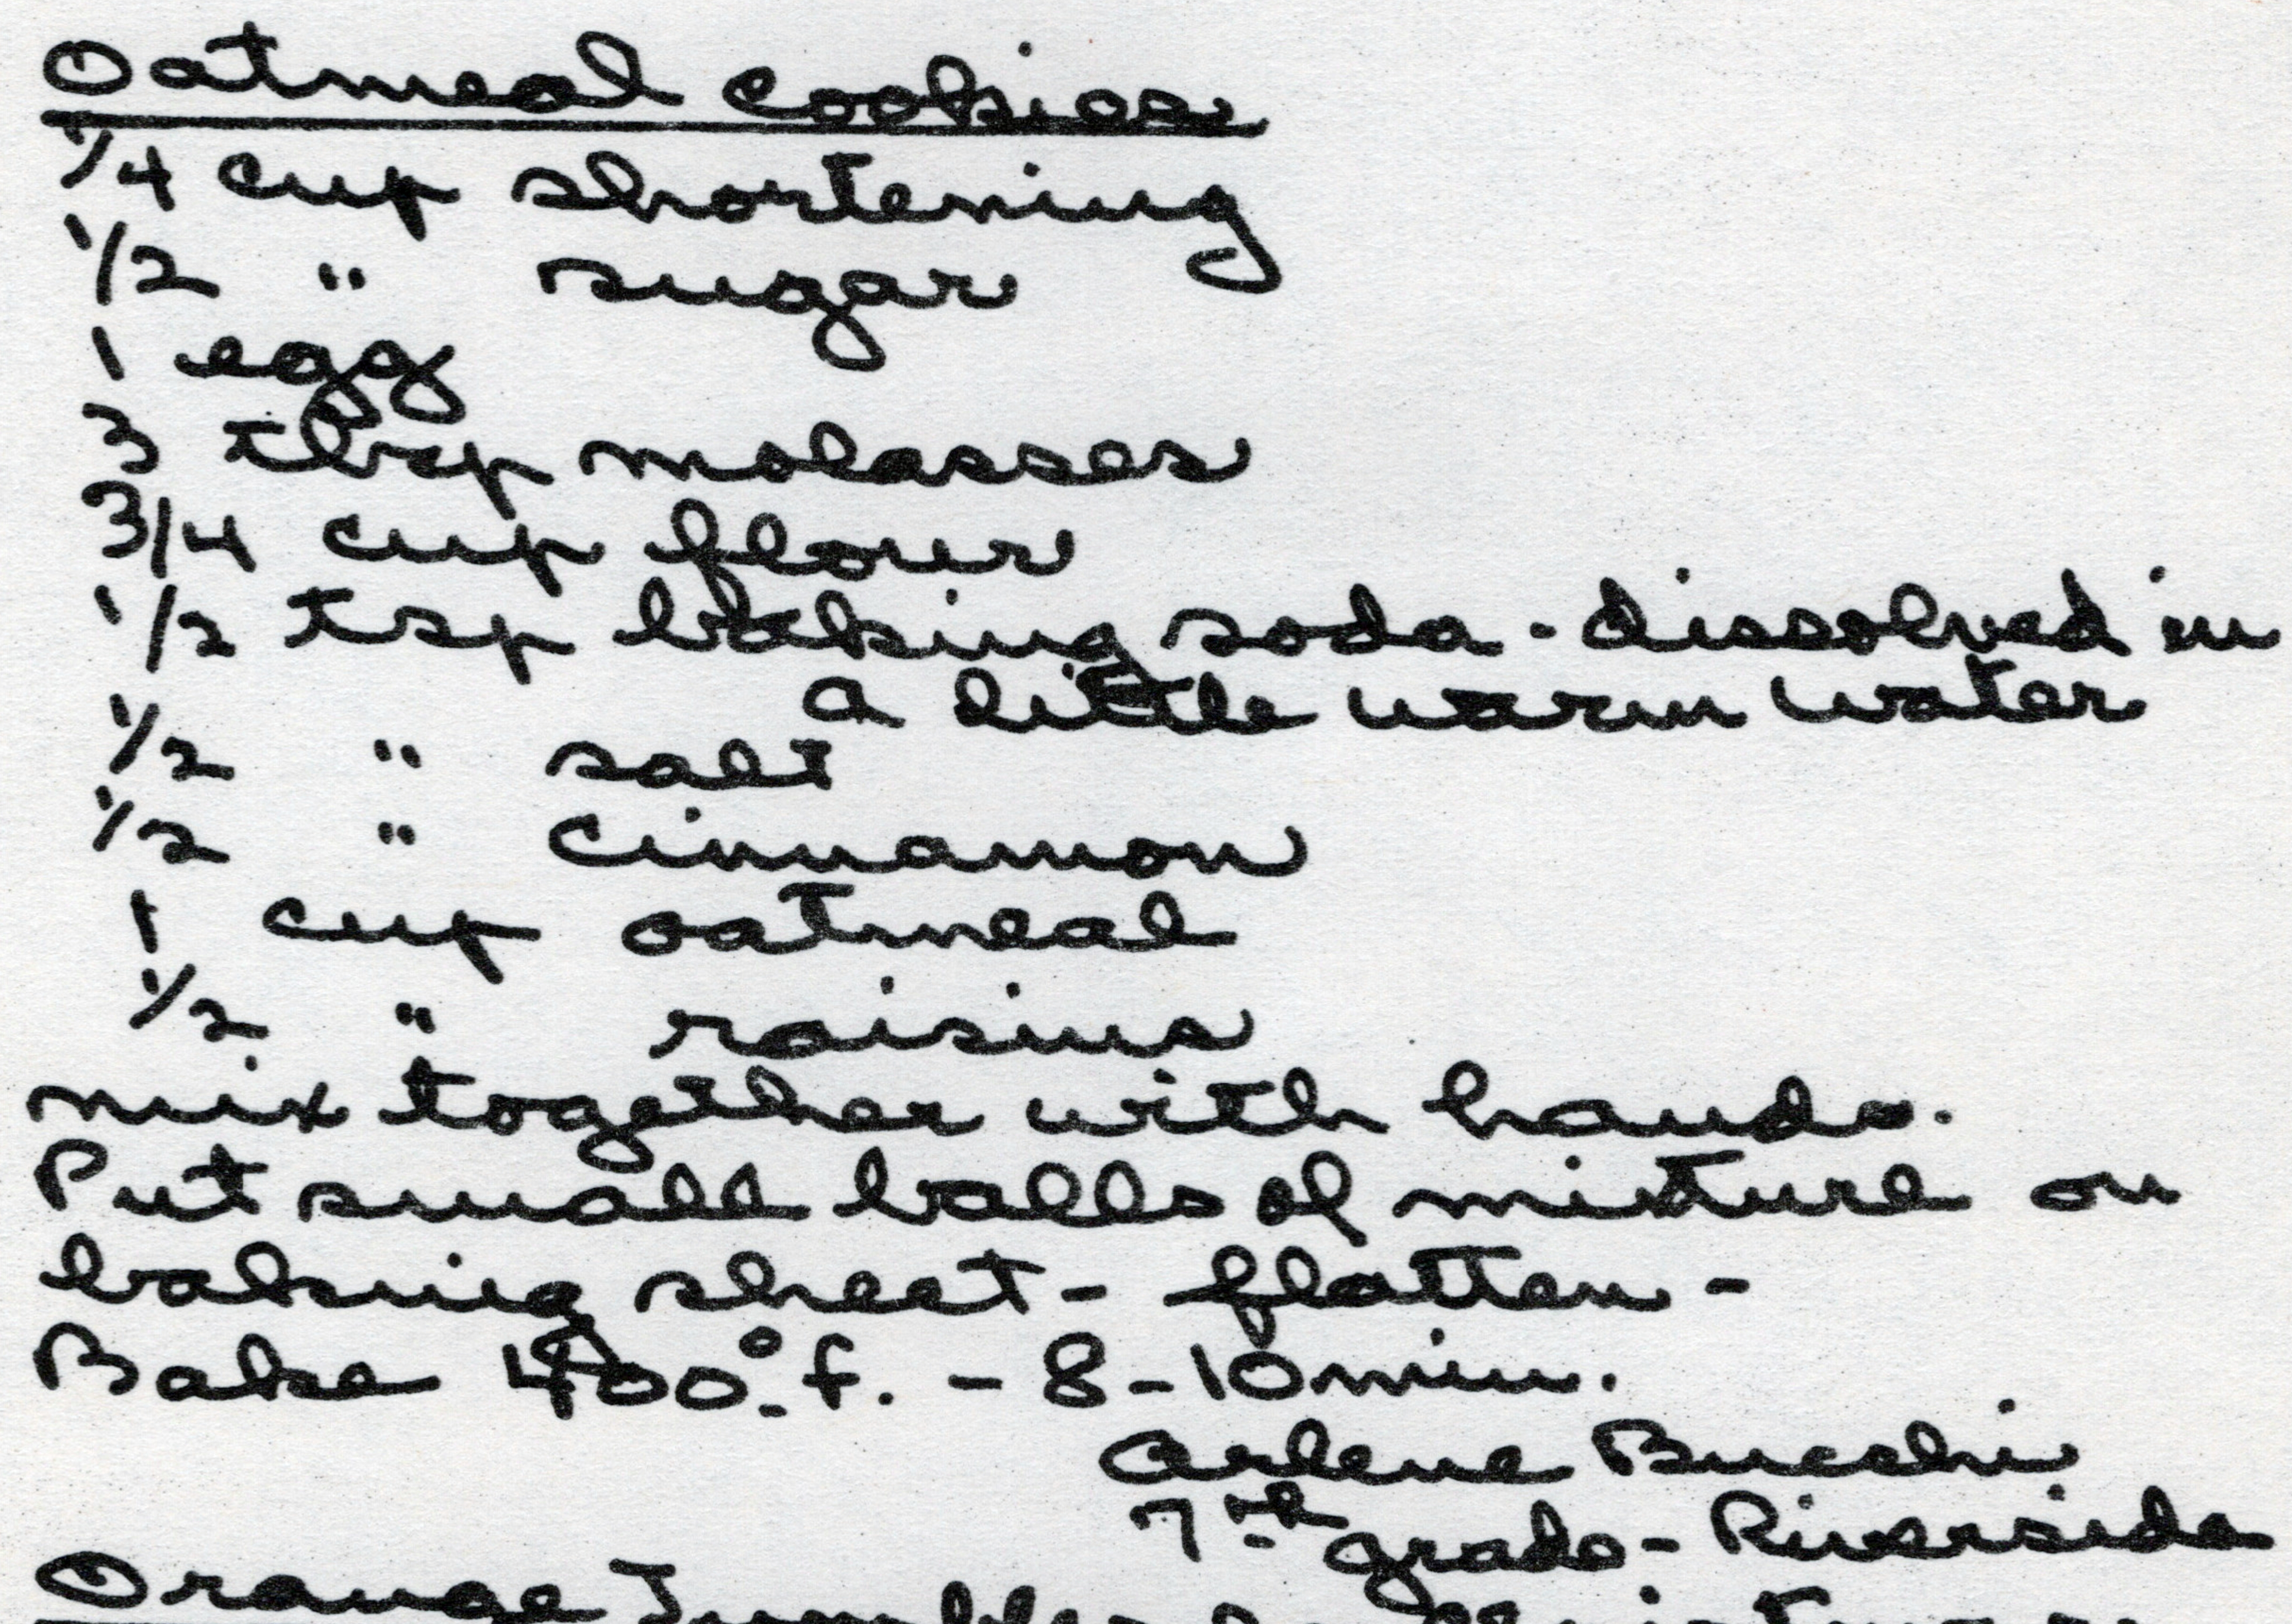 Oatmeal cookies
1/4 cup shortening
1/2 " sugar
1 egg
3 tbsp molasses
3/4 cup flour
1/2 tsp baking soda - dissolved in
a little warm water
1/2 " salt
1/2 " cinnamon
1 cup oatmeal
1/2 " raisins
mix together with hands.
Put small balls of mixture on
baking sheet - flatten -
Bake 400° f. - 8 - 10 min.
Arlene Bucchi
7th grade - Riverside
Orange